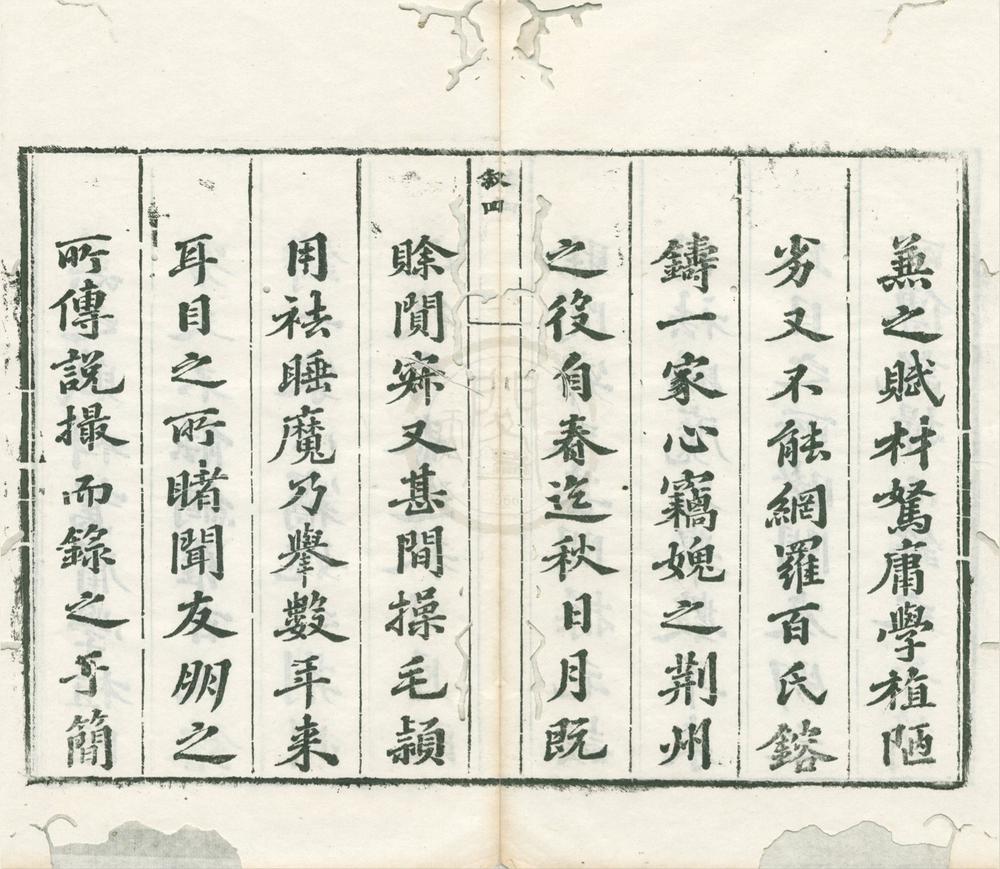 兼之賦材駑庸學植陋
劣又不能網羅百氏鎔
鑄一家心竊媿之荆州
之役自春迄秋日月既
敘四
賒閴寂又甚間操毛穎
用祛睡魔乃舉數年来
耳目之所睹聞友朋之
所傳說撮而錄之于簡